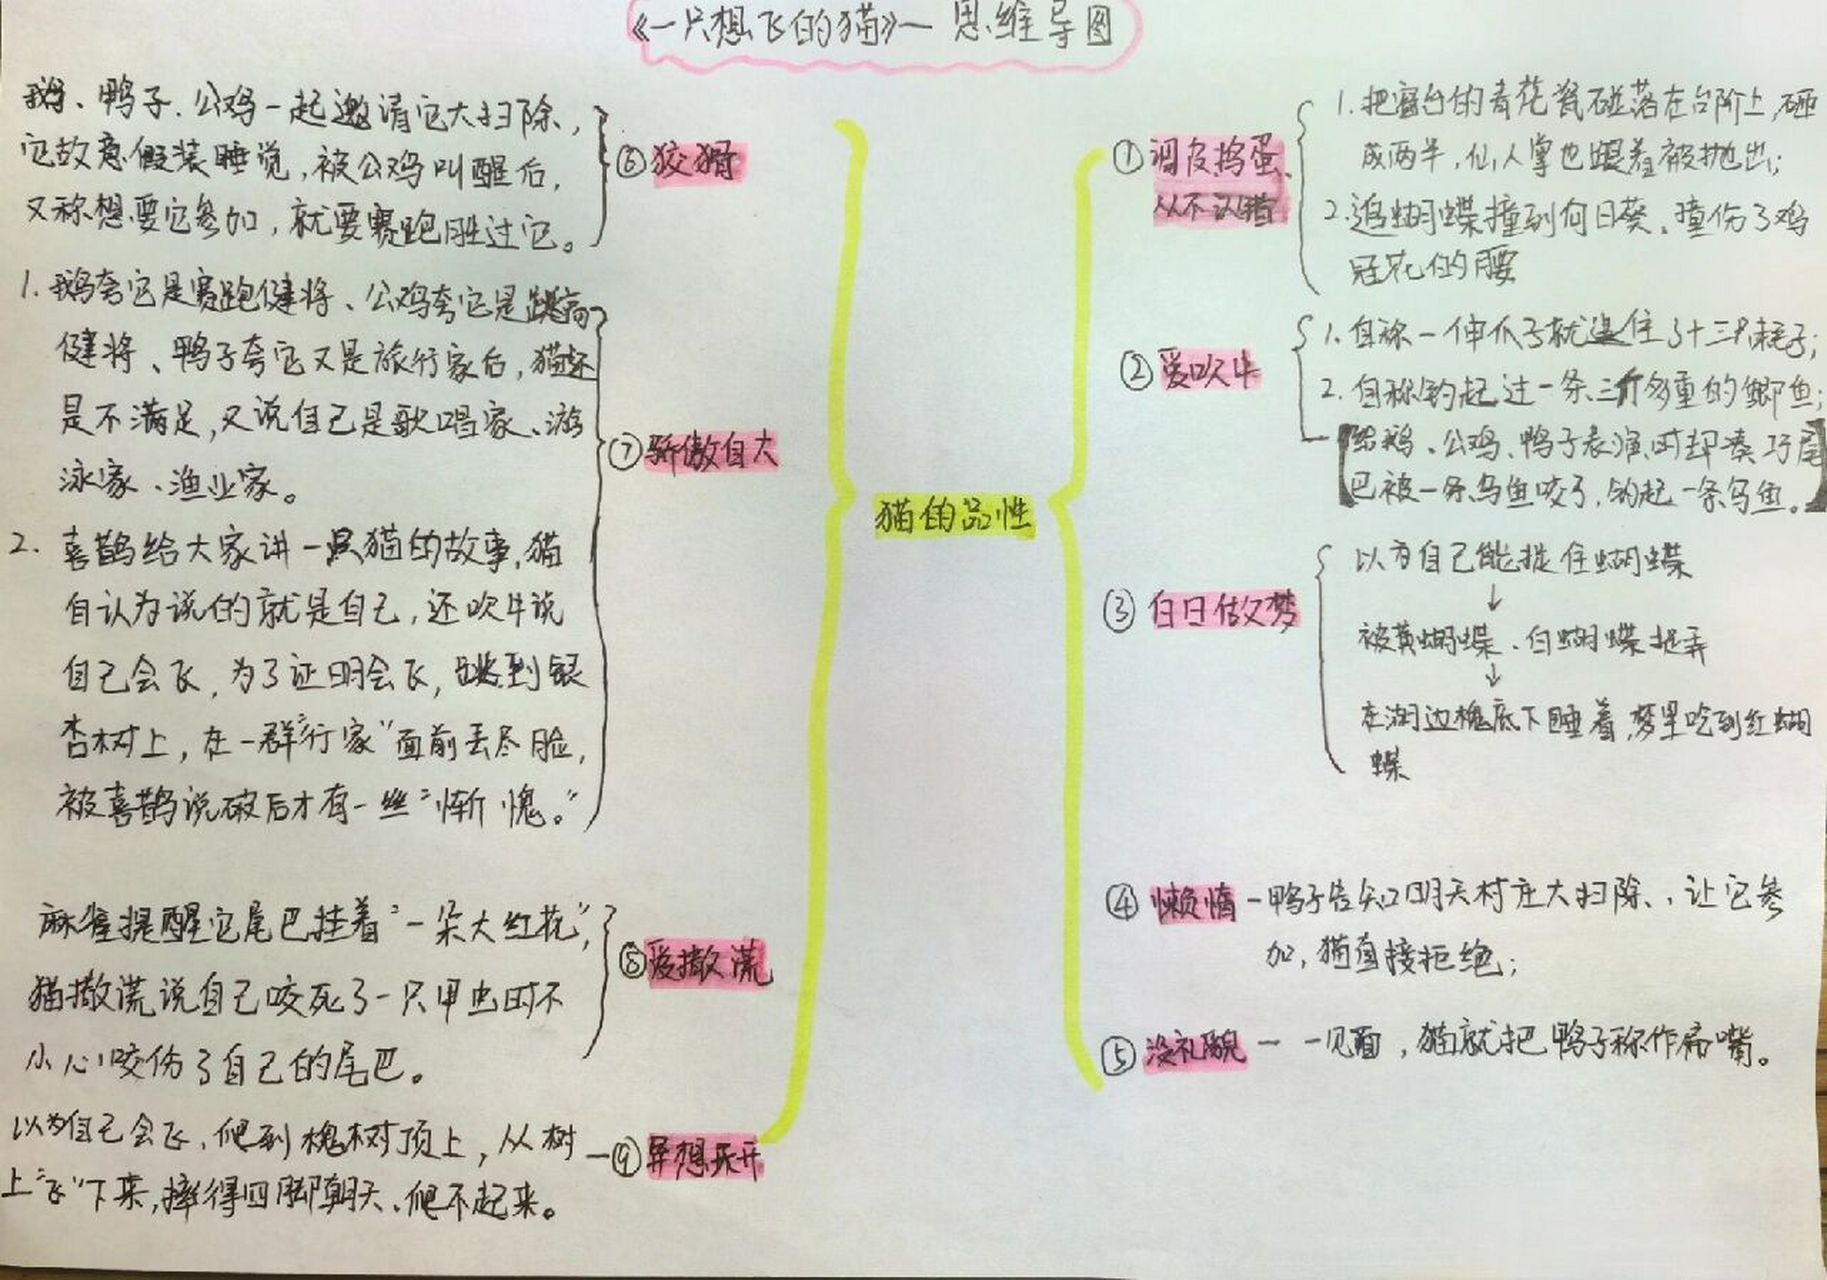 《一只想飞的猫》— 思维导图
鹅、鸭子、公鸡一起邀请它大扫除,
它故意假装睡觉,被公鸡叫醒后,
又称想要它参加,就要赛跑胜过它。
⑥狡猾
1.鹅夸它是赛跑健将、公鸡夸它是跳高
健将、鸭子夸它又是旅行家后,猫还
是不满足,又说自己是歌唱家、游
泳家、渔业家。
⑦骄傲自大
2. 喜鹊给大家讲一只猫的故事,猫
自认为说的就是自己,还吹牛说
自己会飞,为了证明会飞,跳到银
杏树上,在一群“行家”面前丢尽脸,
被喜鹊说破后才有一丝“惭愧。”
麻雀提醒它尾巴挂着“一朵大红花”,
猫撒谎说自己咬死了一只甲虫时不
小心咬伤了自己的尾巴。
⑧爱撒谎
以为自己会飞,爬到槐树顶上,从树
上“飞”下来,摔得四脚朝天、爬不起来。
—⑨异想天开
猫的品性
①调皮捣蛋、
从不认错
1.把窗台的青花瓷碰落在台阶上,砸
成两半,仙人掌也跟着被抛出;
2.追蝴蝶撞到向日葵、撞伤了鸡
冠花的腰
②爱吹牛
1.自称一伸爪子就逮住了十三只耗子;
2.自称钓起过一条三斤多重的鲫鱼;
【给鹅、公鸡、鸭子表演时却凑巧尾
巴被一条乌鱼咬了,钓起一条乌鱼。】
③白日做梦
以为自己能捉住蝴蝶
↓
被黄蝴蝶、白蝴蝶捉弄
↓
在湖边槐底下睡着,梦里吃到红蝴
蝶
④懒惰—鸭子告知明天村庄大扫除、,让它参
加,猫直接拒绝;
⑤没礼貌— 一见面,猫就把鸭子称作扁嘴。